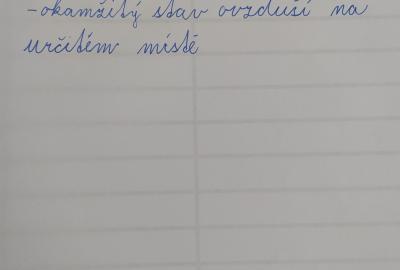 -okamžitý stav ovzduší na
určitém místě